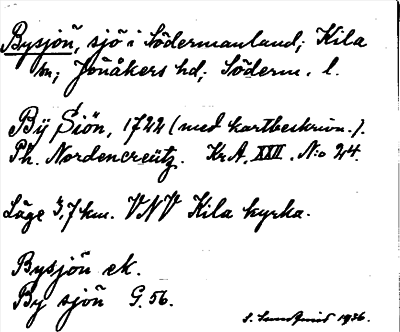 Bysjön, sjö i Södermanland; Kila
sn; Jönåkers hd; Söderm. l.
Bÿ Siön, 1722 (med kartbeskrivn.).
Ph. Nordencreütz. Kr.A. XXII. N:o 24.
Läge 3,7 km. VNV Kila kyrka.
Bysjön ek.
By sjön G. 56.
S. Lundqvist 1936.